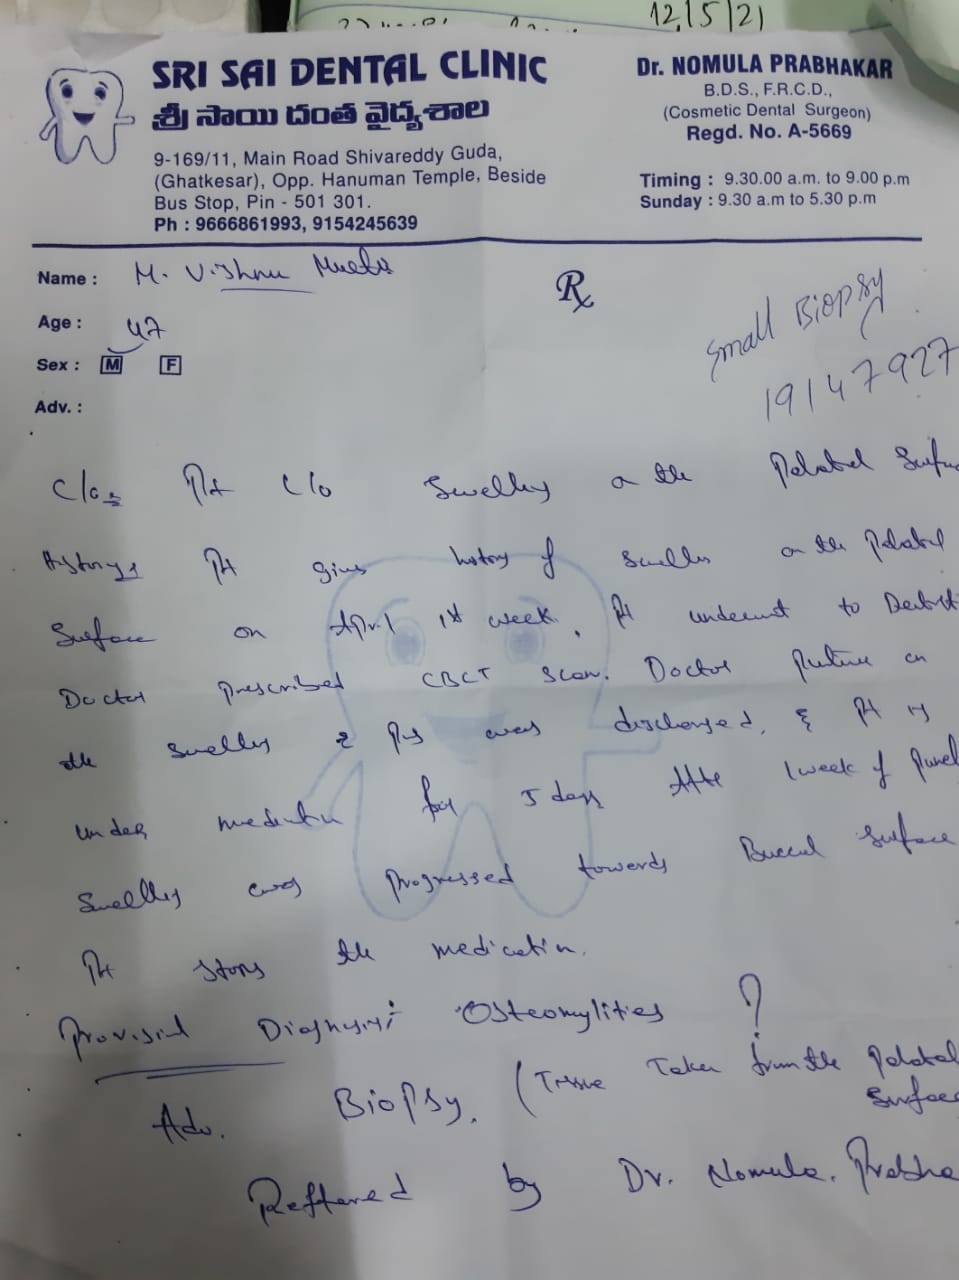 12/5/21
SRI SAI DENTAL CLINIC
శ్రీ సాయి దంత వైద్యశాల
9-169/11, Main Road Shivareddy Guda,
(Ghatkesar), Opp. Hanuman Temple, Beside
Bus Stop, Pin - 501 301.
Ph : 9666861993, 9154245639
Dr. NOMULA PRABHAKAR
B.D.S., F.R.C.D.,
(Cosmetic Dental Surgeon)
Regd. No. A-5669
Timing : 9.30.00 a.m. to 9.00 p.m
Sunday : 9.30 a.m to 5.30 p.m
Name : M. Vishnu
Rx
Age : 47
Sex : M F
Adv. :
Small Biopsy
19147927
Pt C/o Swelling on the Palatal
History Pt gives history of swelling on the Palatal
Surface on April 1st week. Pt underwent to
Doctor prescribed CBCT Scan. Doctor on
the swelling & Pus was discharged, & Pt is
under for 5 days 1 week of
Swelling was progressed towards Buccal Surface
Pt stops the medication.
Diagnosis: Osteomylities ?
Adv. Biopsy. (Tissue Taken from the Palatal
Surface
Reffered by Dr. Nomula.